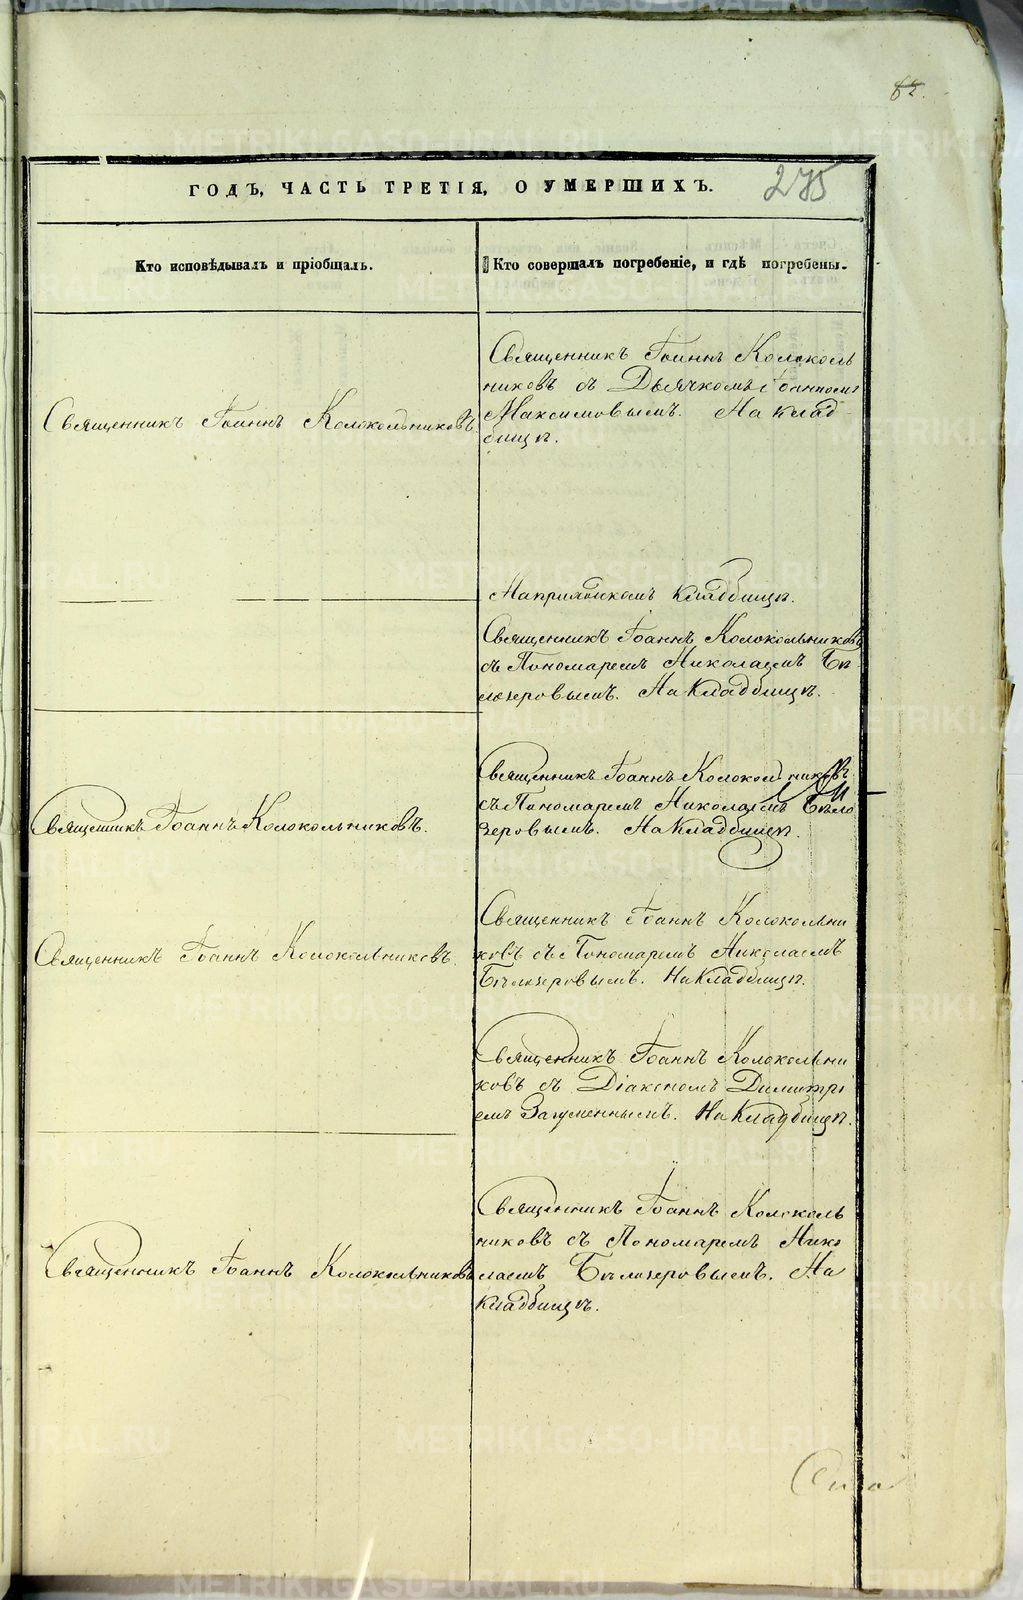 62.
ГОДЪ, ЧАСТЬ ТРЕТІЯ, О УМЕРШИХЪ.
275
Кто исповѣдывалъ и пріобщалъ.
Кто совершалъ погребеніе, и гдѣ погребены.
Священникъ Іоаннъ Колокольниковъ
Священникъ Іоаннъ Колоколь
никовъ съ Дьячкомъ Іоанномъ
Максимовымъ. На клад-
бищѣ.
кладбищѣ.
Священникъ Іоаннъ Колокольниковъ
съ Пономаремъ Николаемъ Бѣ
лозеровымъ. На кладбищѣ.
Священникъ Іоаннъ Колокольниковъ.
Священникъ Іоаннъ Колокольниковъ
съ Пономаремъ Николаемъ Бѣло
зеровымъ. На кладбищѣ.
Священникъ Іоаннъ Колокольниковъ.
Священникъ Іоаннъ Колокольни
ковъ съ Пономаремъ Николаемъ
Бѣлозеровымъ. На кладбищѣ.
Священникъ Іоаннъ Колокольни
ковъ съ Діакономъ Димитрі
емъ Загуменнымъ. На кладбищѣ.
Священникъ Іоаннъ Колокольниковъ
Священникъ Іоаннъ Колоколь
никовъ съ Пономаремъ Нико
лаемъ Бѣлозеровымъ. На
кладбищѣ.
METRIKI.GASO-URAL.RU